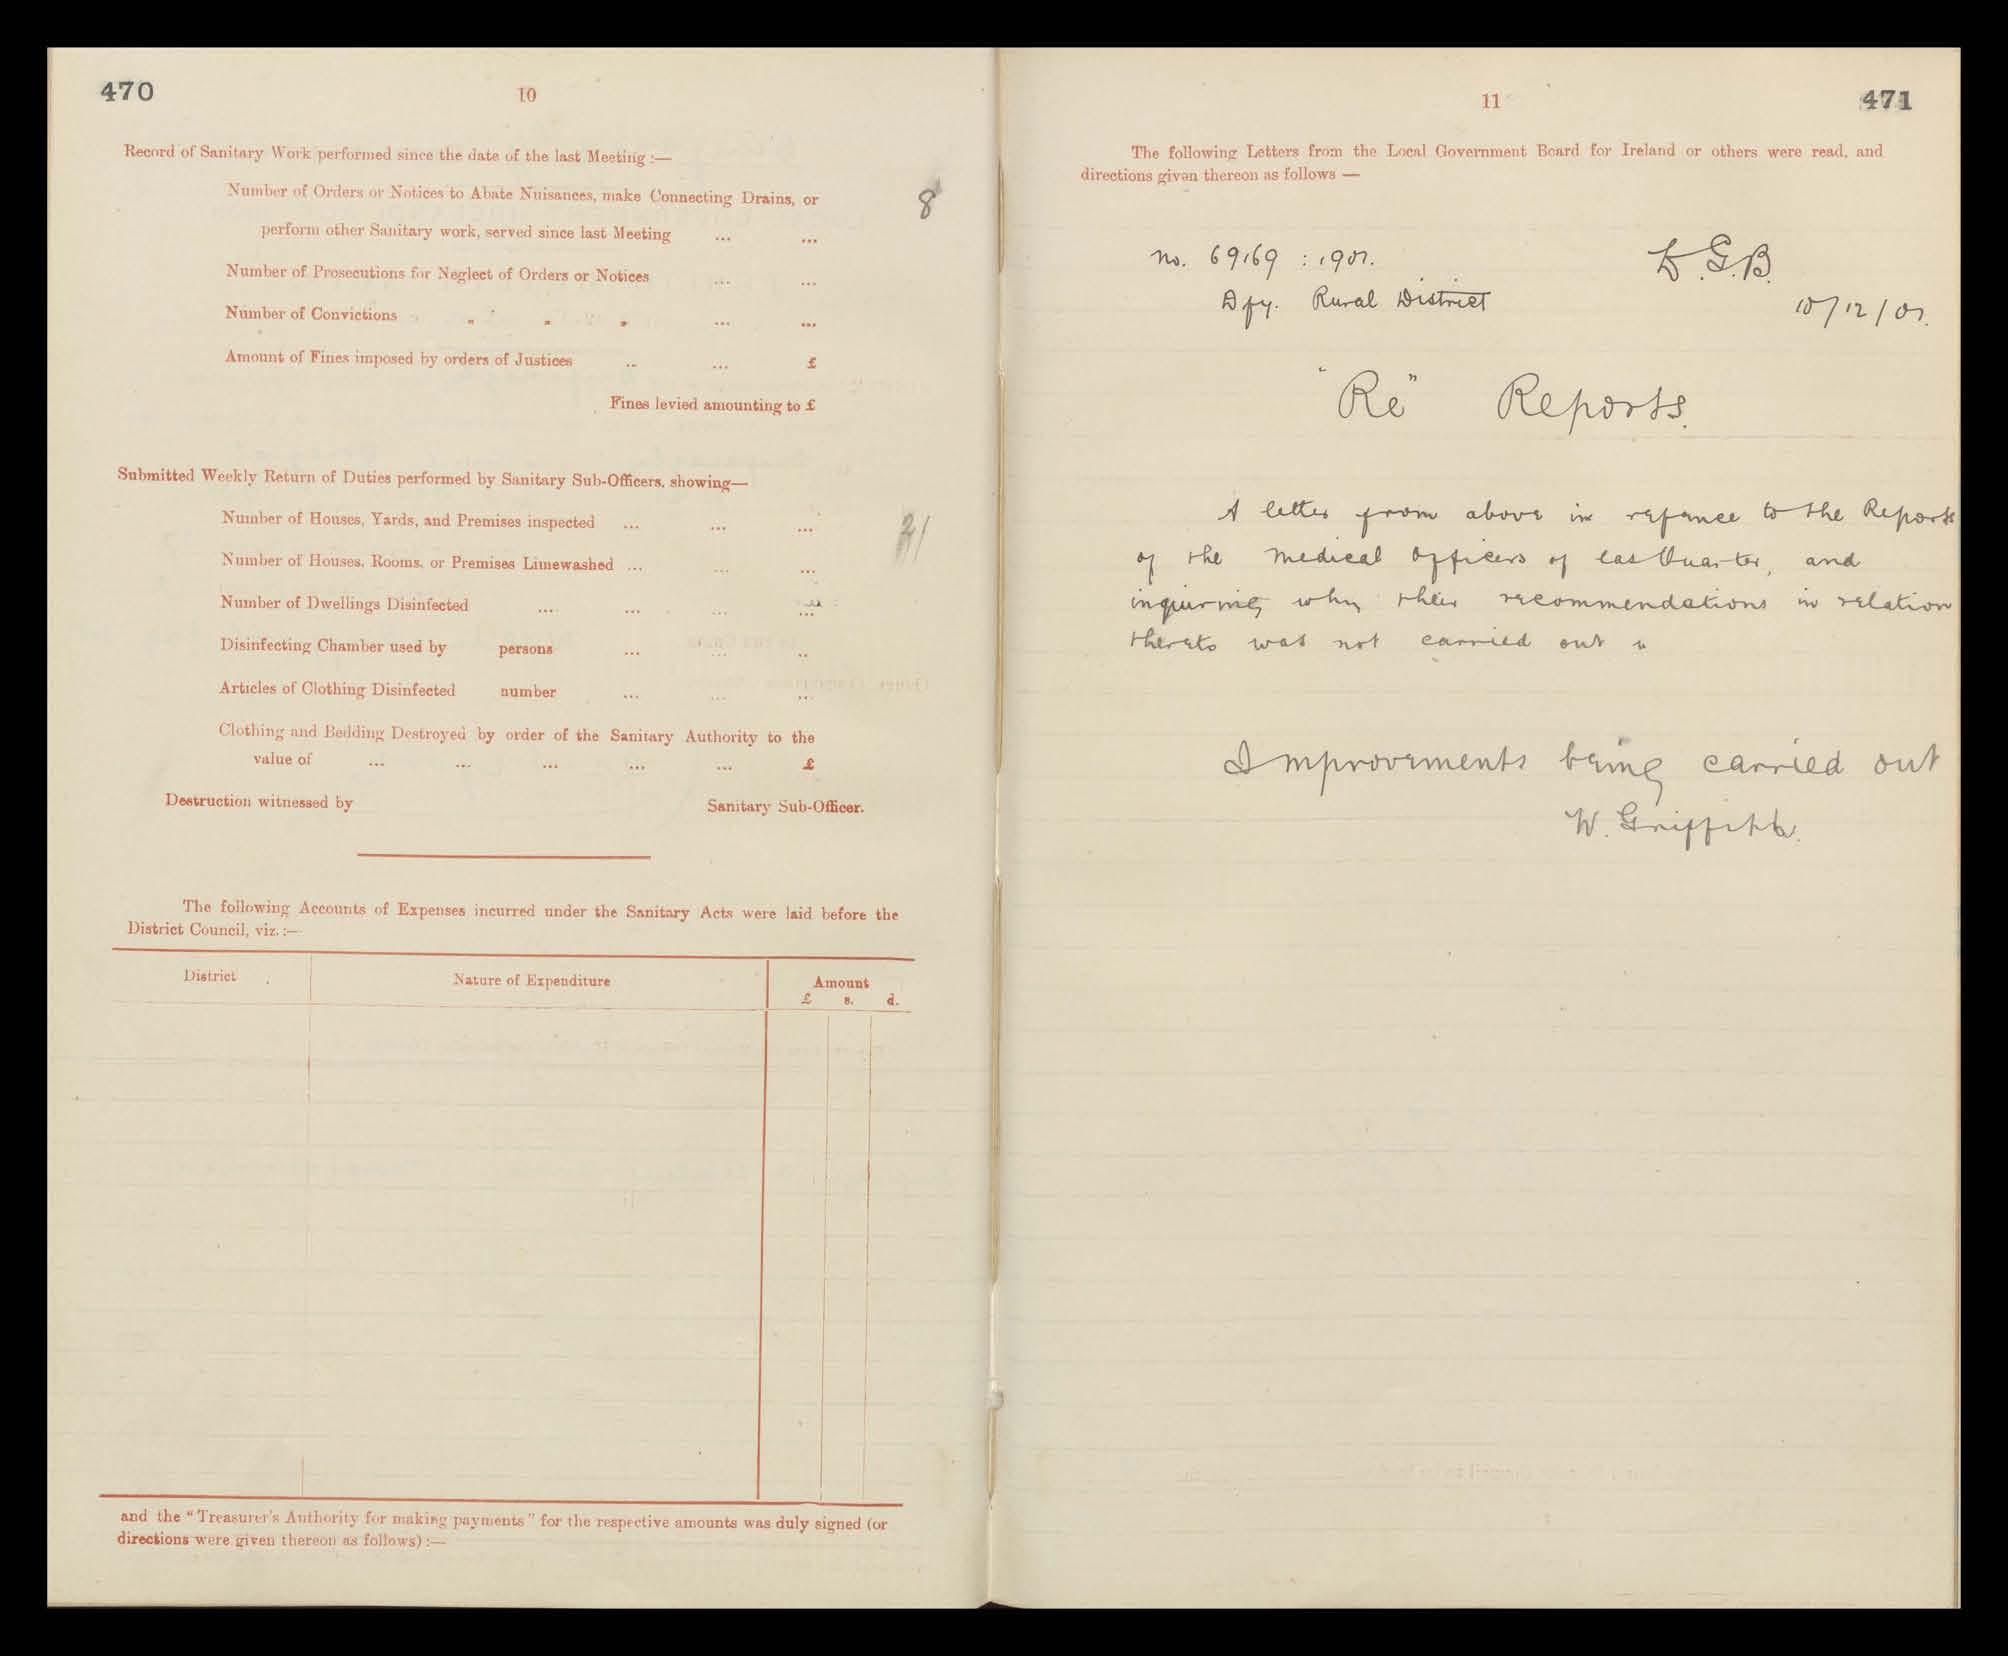 470
10
Record of Sanitary Work performed since the date of the last Meeting :—
Number of Orders or Notices to Abate Nuisances, make Connecting Drains, or
perform other Sanitary work, served since last Meeting ... ...
8
Number of Prosecutions for Neglect of Orders or Notices ... ...
Number of Convictions „ „ „ ... ...
Amount of Fines imposed by orders of Justices .. ... £
Fines levied amounting to £
Submitted Weekly Return of Duties performed by Sanitary Sub-Officers, showing—
Number of Houses, Yards, and Premises inspected ... ... ...
21
Number of Houses, Rooms, or Premises Limewashed ... ... ...
Number of Dwellings Disinfected ... ... ... ...
Disinfecting Chamber used by persons ... ... ..
Articles of Clothing Disinfected number ... ... ...
Clothing and Bedding Destroyed by order of the Sanitary Authority to the
value of ... ... ... ... ... £
Destruction witnessed by Sanitary Sub-Officer.
The following Accounts of Expenses incurred under the Sanitary Acts were laid before the
District Council, viz. :—
District Nature of Expenditure Amount
£ s. d.
and the "Treasurer's Authority for making payments" for the respective amounts was duly signed (or
directions were given thereon as follows) :—
11
471
The following Letters from the Local Government Board for Ireland or others were read, and
directions given thereon as follows —
No. 69169 : 1907. L.G.B.
Dfy. Rural District 10/12/07.
"Re" Reports.
A letter from above in refence to the Reports
of the Medical Officers of last Quarter, and
inquiring why their recommendations in relation
thereto was not carried out
Improvements being carried out
W. Griffith.